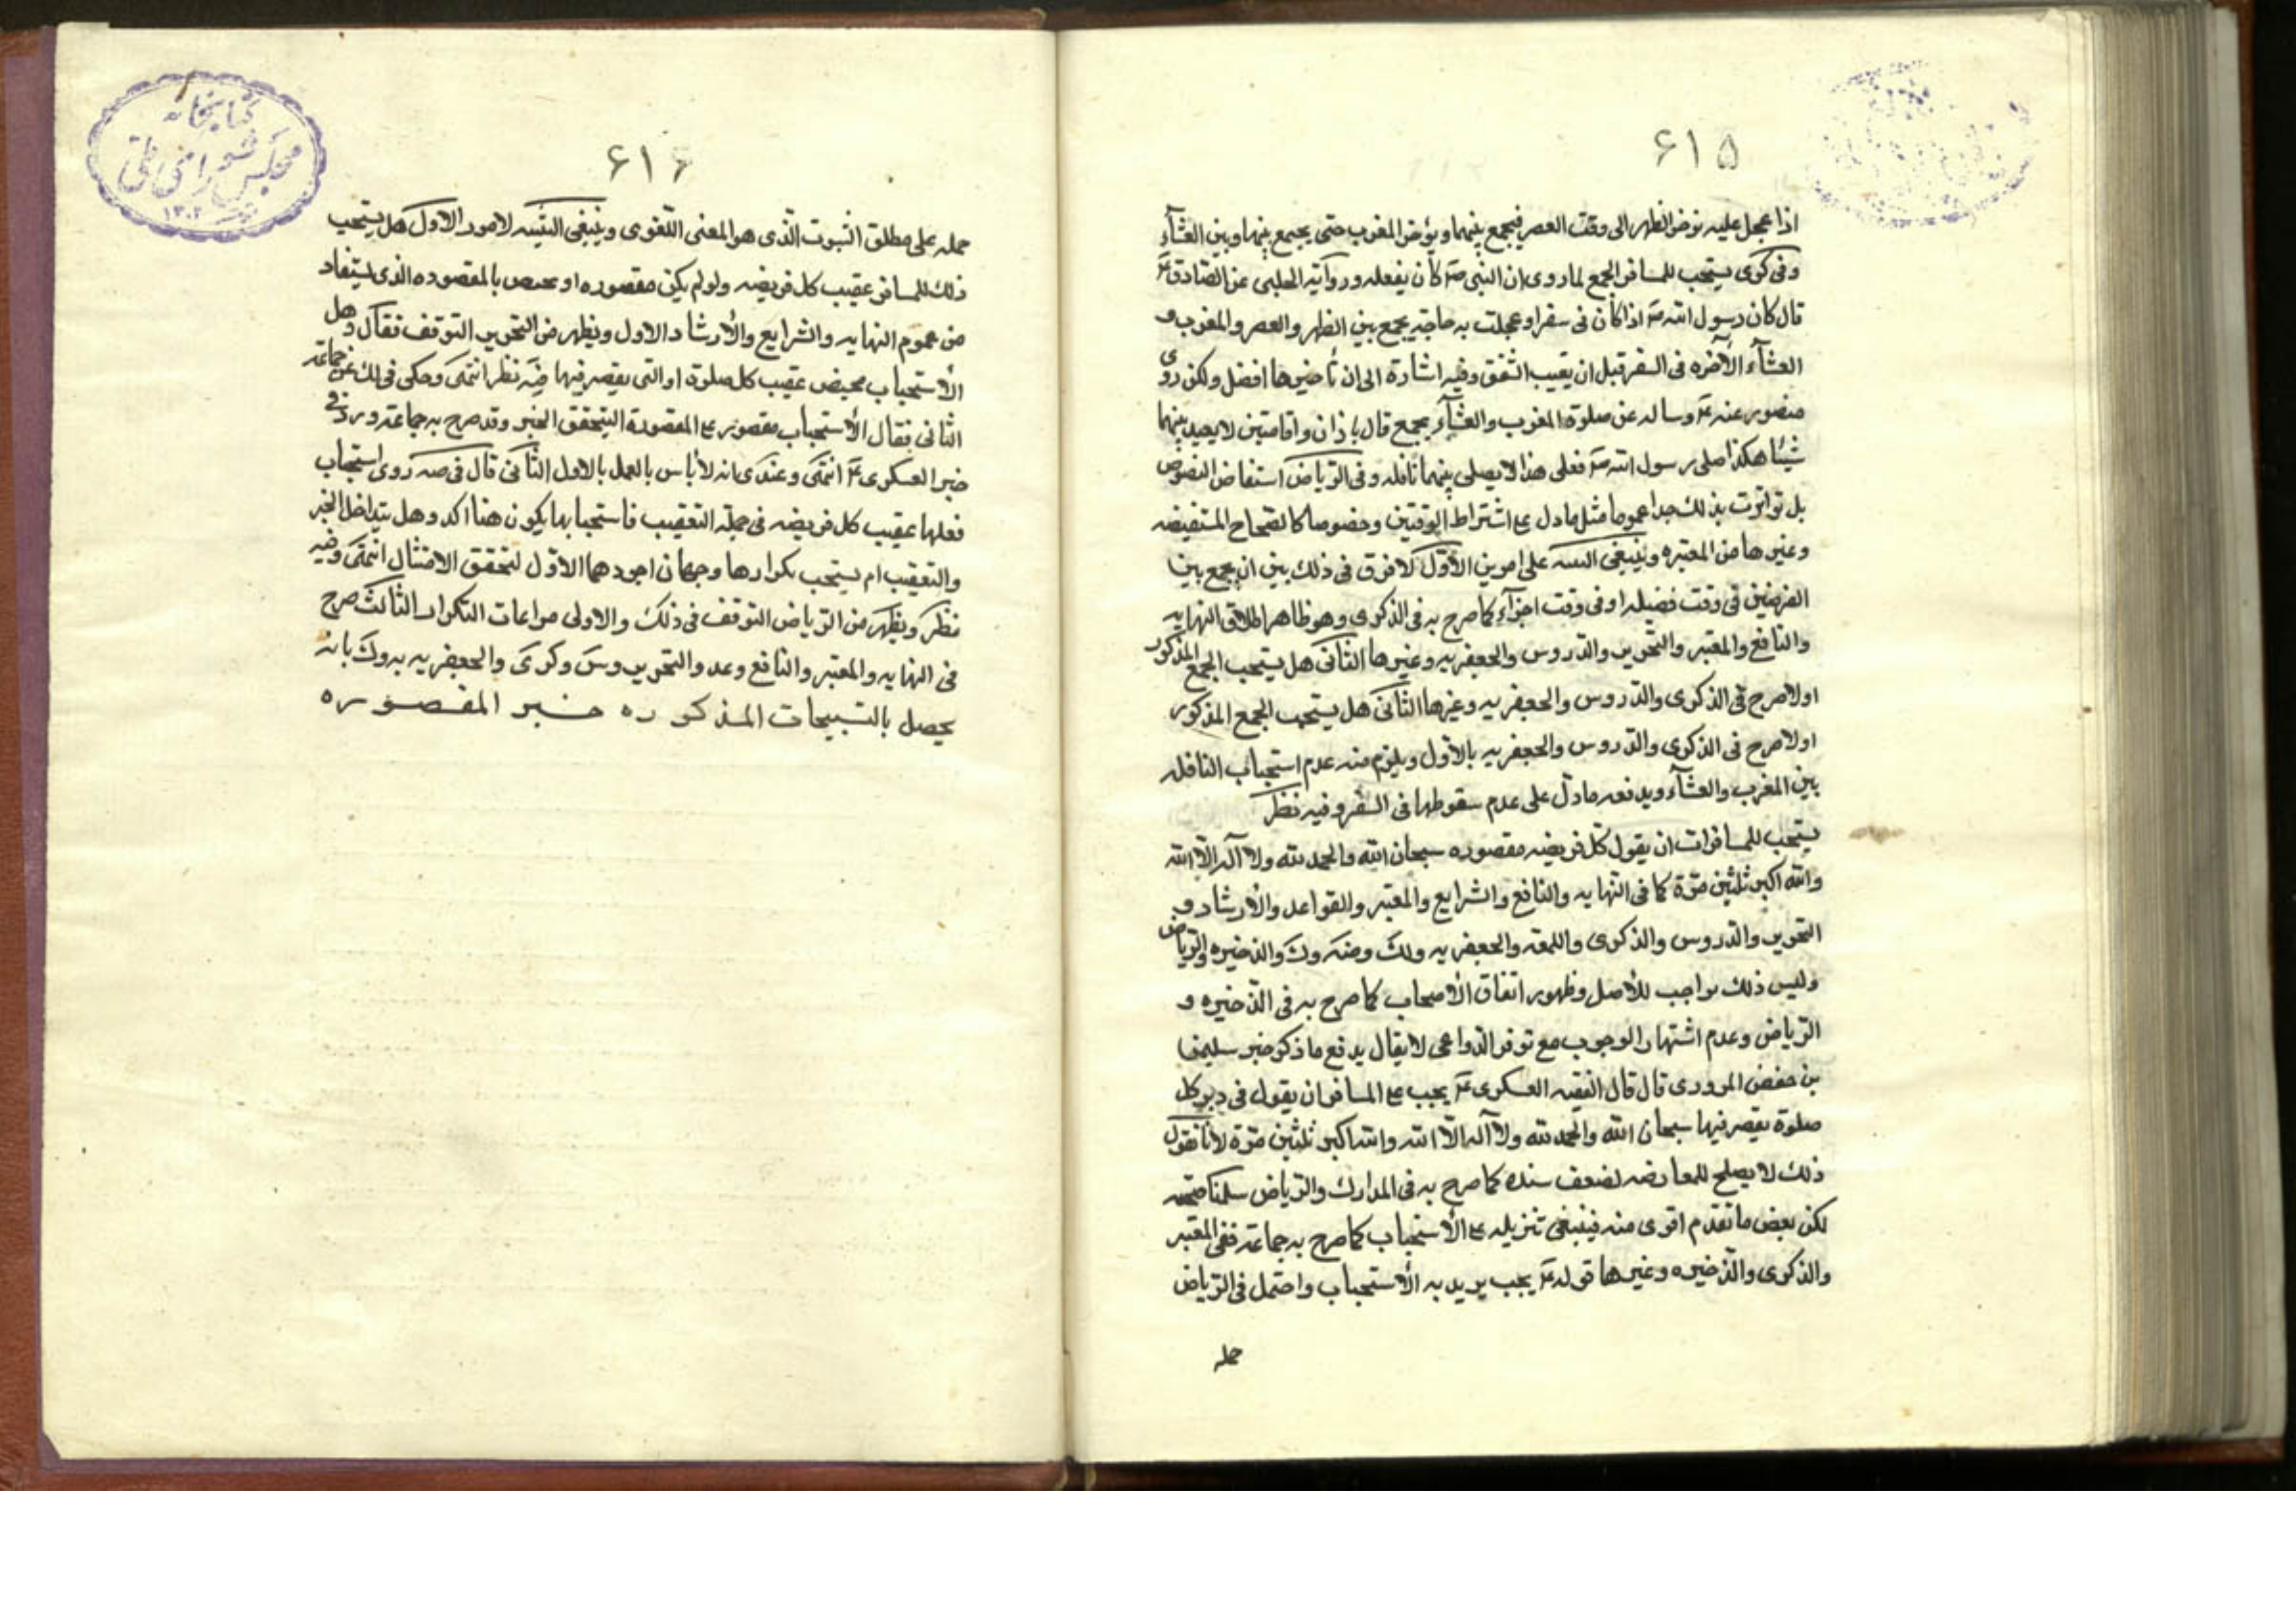 ۶۱۵
اذا عجل عليه يؤخر الظهر الى وقت العصر فيجمع بينهما ويؤخر المغرب حتى يجمع بينها وبين العشآء
وفى كرى يستحب للمسافر الجمع لما روى ان النبى صه كان يفعله ورواية الحلبى عن الصادق ع
قال كان رسول الله صه اذا كان فى سفر او عجلت به حاجة يجمع بين الظهر والعصر والمغرب و
العشآء الآخره فى السفر قبل ان يغيب الشفق وفيه اشارة الى ان تاخيرها افضل ولكن روى
منصور عنه ع وساله عن صلوة المغرب والعشآء بجمع قال باذان واقامتين لا بينهما
شيئا هكذا صلى رسول الله صه فعلى هذا لا يصلى بينهما نافله وفى الرياض استفاض النصوص
بل تواترت بذلك جدا عموما مثل ما دل ع اشتراط الوقتين وخصوصا كالصحاح المستفيضه
وغيرها من المعتبره وينبغى التنبيه على امورين الأوّل لا فرق فى ذلك بين ان يجمع بين
الفرضين فى وقت فضيله او فى وقت اجزآء كما صرح به فى الذكرى وهو ظاهر اطلاق النهايه
والنافع والمعتبر والتحرير والدروس والجعفريه وغيرها الثانى هل يستحب الجمع المذكور
اولا صرح فى الذكرى والدروس والجعفريه وغيرها الثانى هل يستحب الجمع المذكور
اولا صرح فى الذكرى والدروس والجعفريه بالأول ويلزم منه عدم استحباب النافله
بين المغرب والعشآء ويدفعه ما دل على عدم سقوطها فى السفر وفيه نظر
يستحب للمسافرات ان يقول كل فريضه مقصوره سبحان الله والحمد لله ولا آله الا الله
والله اكبر ثلثين مرّة كما فى النهايه والنافع والشرايع والمعتبر والقواعد والأرشاد و
التحرير والدروس والذكرى واللمعه والجعفريه ولك وضه وك والذخيره والرياض
وليس ذلك بواجب للأصل وظهور اتفاق الأصحاب كما صرح به فى الذخيره و
الرياض وعدم اشتهار الوجوب مع توفر الدواعى لا يقال يدفع ما ذكر خبر سليمن
بن حفص المروزى قال قال الفقيه العسكرى ع يجب ع المسافر ان يقول فى دبر كل
صلوة يقصر فيها سبحان الله والحمد لله ولا آله الا الله والله اكبر ثلثين مرّة لأنا نقول
ذلك لا يصلح للمعارضه لضعف سنده كما صرح به فى المدارك والرياض سلمنا صحته
لكن بعض ما تقدم اقوى منه فينبغى تنزيله ع الأستحباب كما صرح به جماعه ففى المعتبر
والذكرى والذخيره وغيرها قوله ع يجب يريد به الأستحباب واحتمل فى الرياض
حمله
كتابخانه
مجلس شوراى ملى
۱۳۰۲
۶۱۶
حمله على مطلق الثبوت الّذى هو المعنى اللّغوى وينبغى التنبيه لامور الاول هل يستحب
ذلك للمسافر عقيب كل فريضه ولو لم يكن مقصوره او يختص بالمقصوره الذى يستفاد
من عموم النهايه والشرايع والأرشاد الاول ويظهر من التحرير التوقف فقال وهل
الأستحباب عقيب كل صلوة او التى يقصر فيها فيه نظر انتهى وحكى فى لك عن جماعه
الثانى فقال الأستحباب مقصور ع المقصورة الخبر وقد صرح به جماعه ورد فى
خبر العسكرى ع انتهى وعندى انه لا بأس بالعمل بالاول الثانى قال فى ضه روى استحباب
فعلها عقيب كل فريضه فى جملة التعقيب فاستحبابها يكون هنا اكد وهل يتداخل الخبر
والتعقيب ام يستحب تكرارها وجهان اجودهما الاوّل لتحقق الامتثال انتهى وفيه
نظر ويظهر من الرياض التوقف فى ذلك والاولى مراعات التكرار الثالث صرح
فى النهايه والمعتبر والنافع وعد والتحرير وس وكرى والجعفريه بانه
يحصل بالتسبيحات المذكوره خبر المقصوره